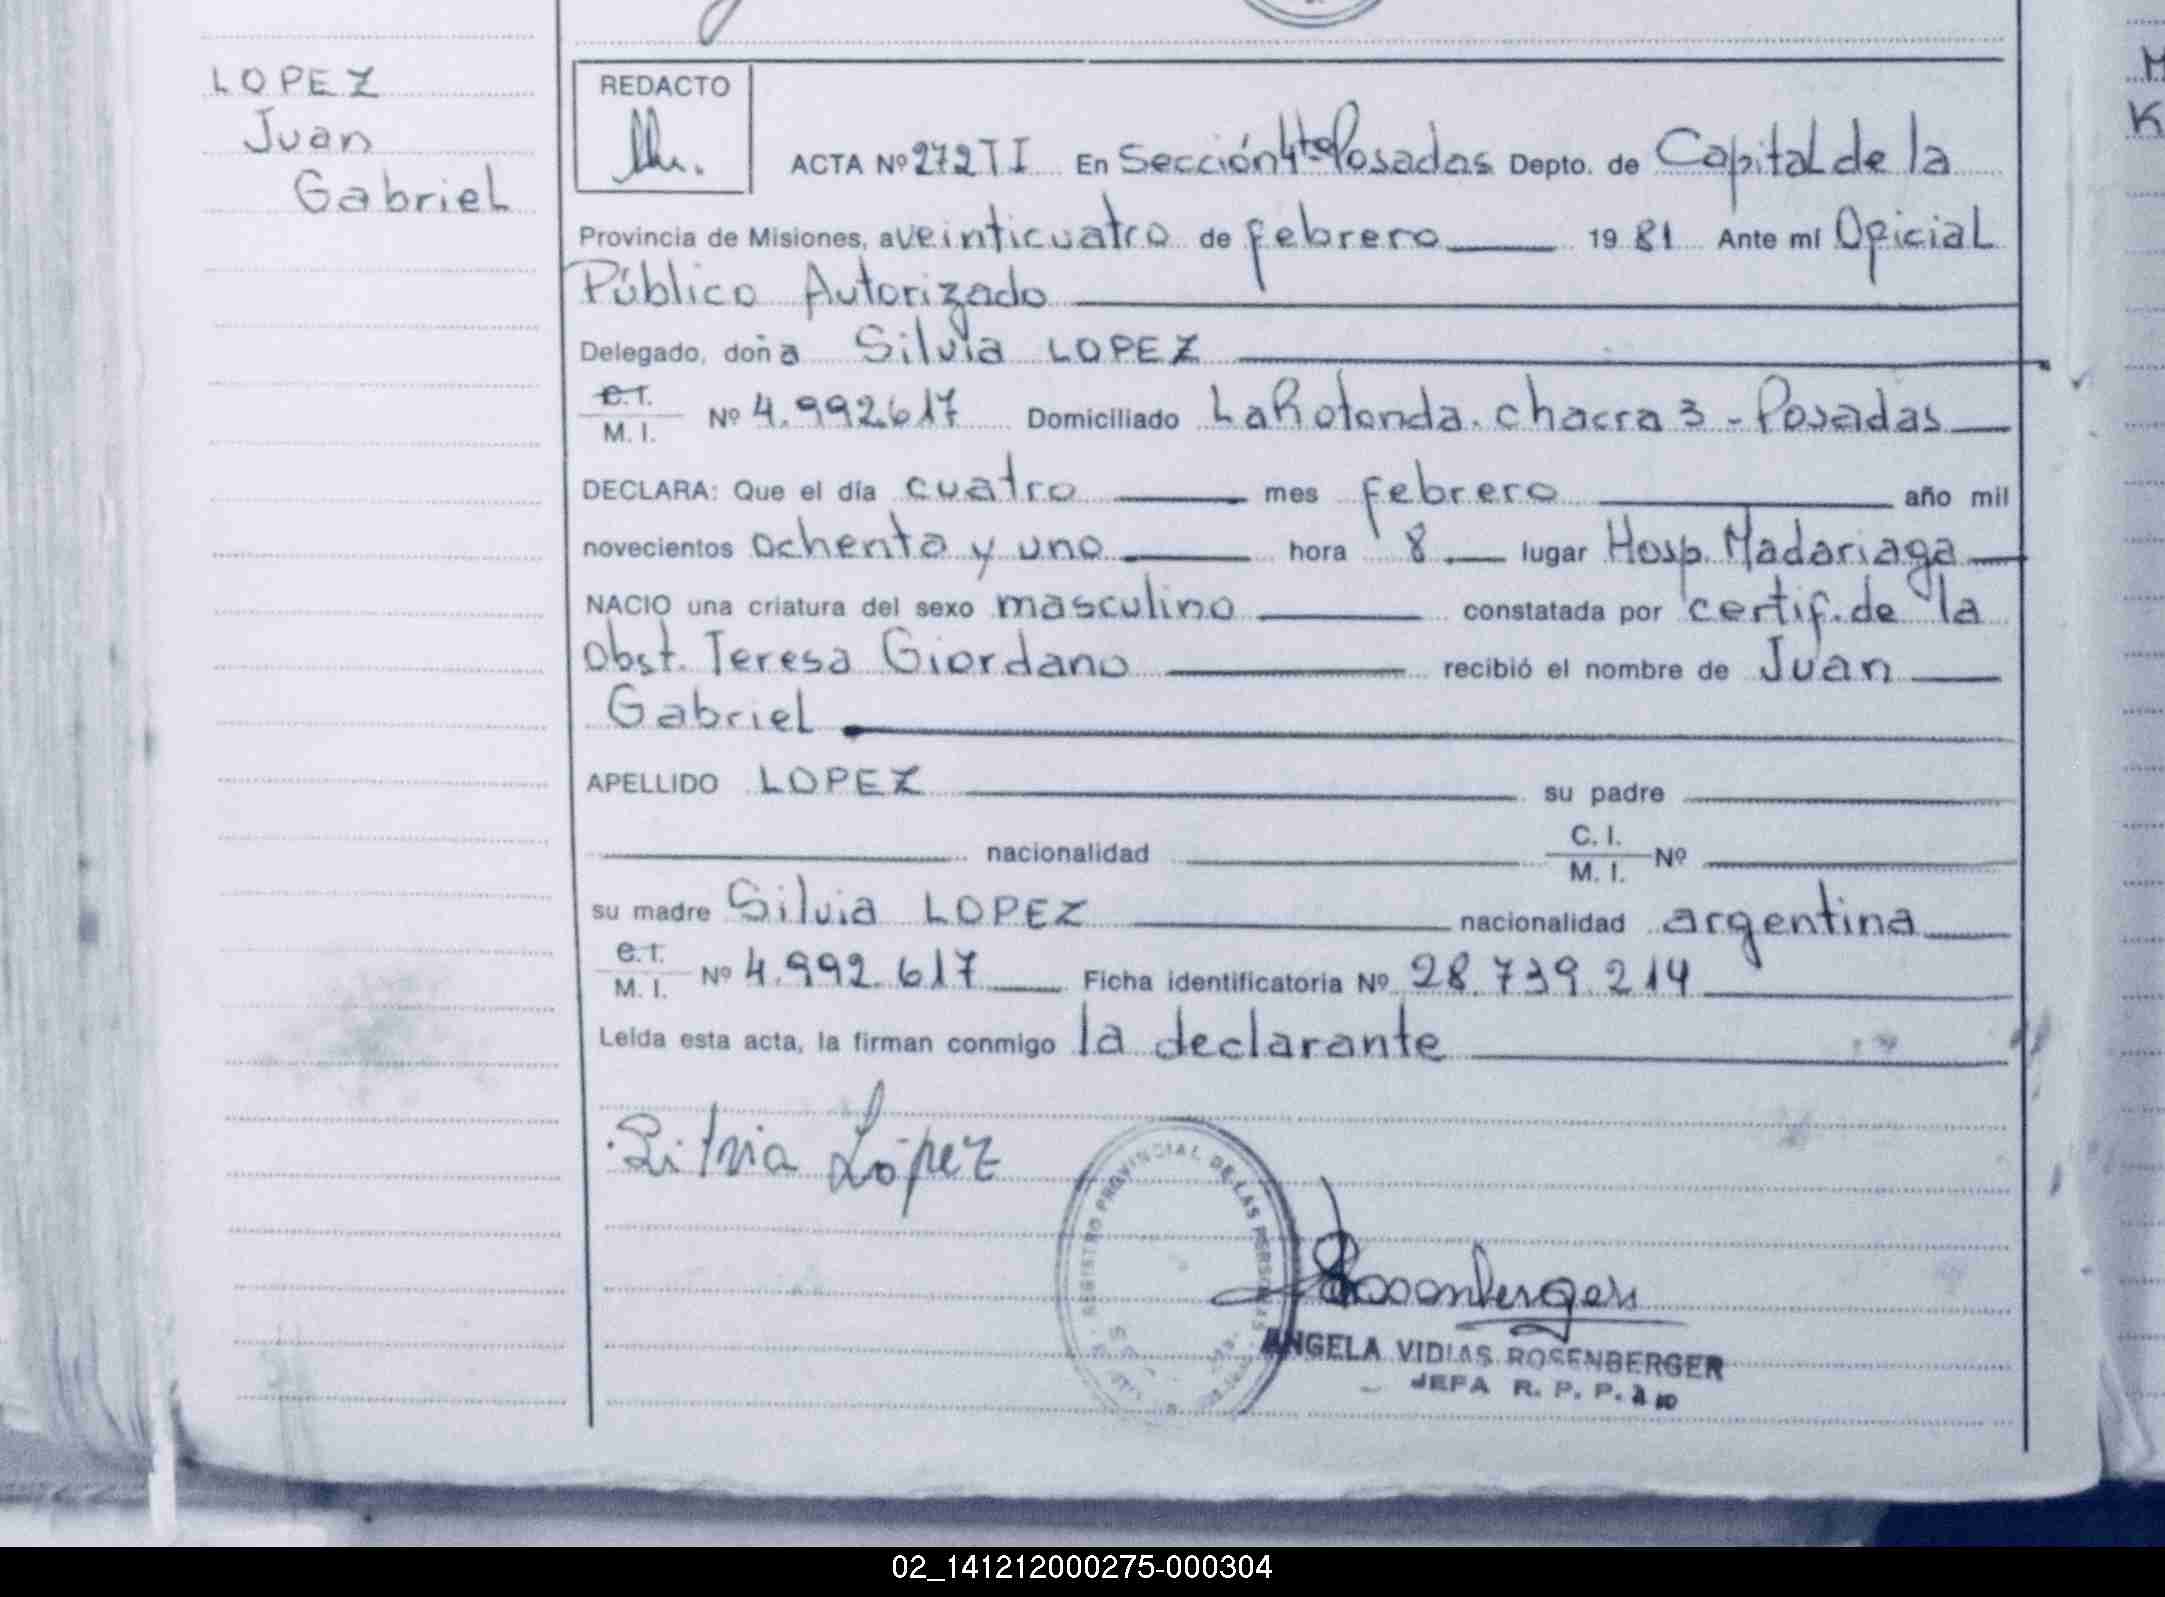 LOPEZ
Juan
Gabriel
REDACTO
ACTA Nº 272 T I En Sección 4ta Posadas Depto. de Capital de la
Provincia de Misiones, a veinticuatro de febrero 1981 Ante mí Oficial
Público Autorizado
Delegado, doña Silvia LOPEZ
C.I.
M. I. Nº 4.992.617 Domiciliado La Rotonda. chacra 3 - Posadas
DECLARA: Que el día cuatro mes febrero año mil
novecientos ochenta y uno hora 8 lugar Hosp. Madariaga
NACIO una criatura del sexo masculino constatada por certif. de la
Obst. Teresa Giordano recibió el nombre de Juan
Gabriel
APELLIDO LOPEZ su padre
nacionalidad C. I.
M. I. Nº
su madre Silvia LOPEZ nacionalidad argentina
C.I.
M. I. Nº 4.992.617 Ficha identificatoria Nº 28.739.214
Leída esta acta, la firman conmigo la declarante
Silvia López
REGISTRO PROVINCIAL DE LAS PERSONAS
Rosenberger
ANGELA VIDIAS ROSENBERGER
JEFA R. P. P.
02_141212000275-000304